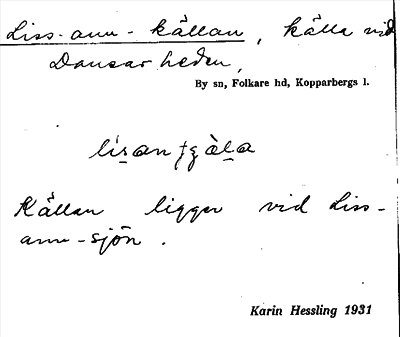 Liss-ann-källan, källa vid
Dansarheden,
By sn, Folkare hd, Kopparbergs l.
Källan ligger vid Liss-
ann-sjön.
Karin Hessling 1931